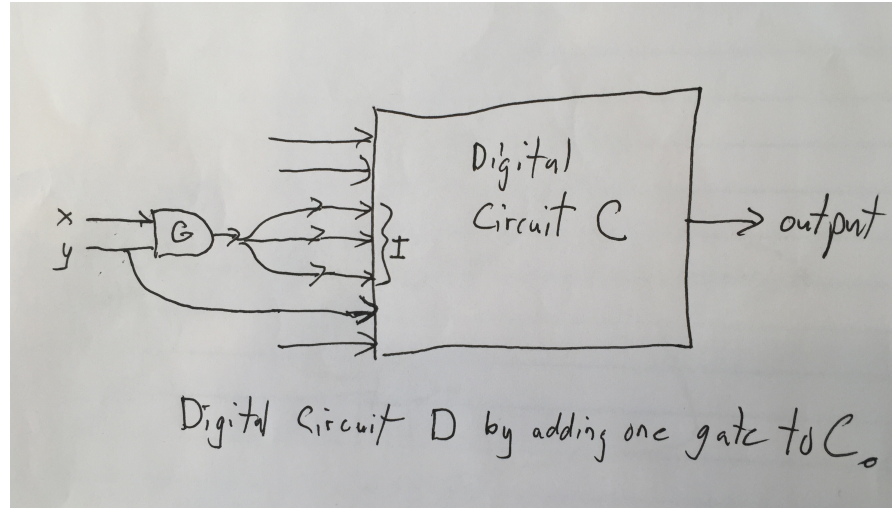 Digital
Circuit C
output
x
G
y
I
Digital Circuit D by adding one gate to C.